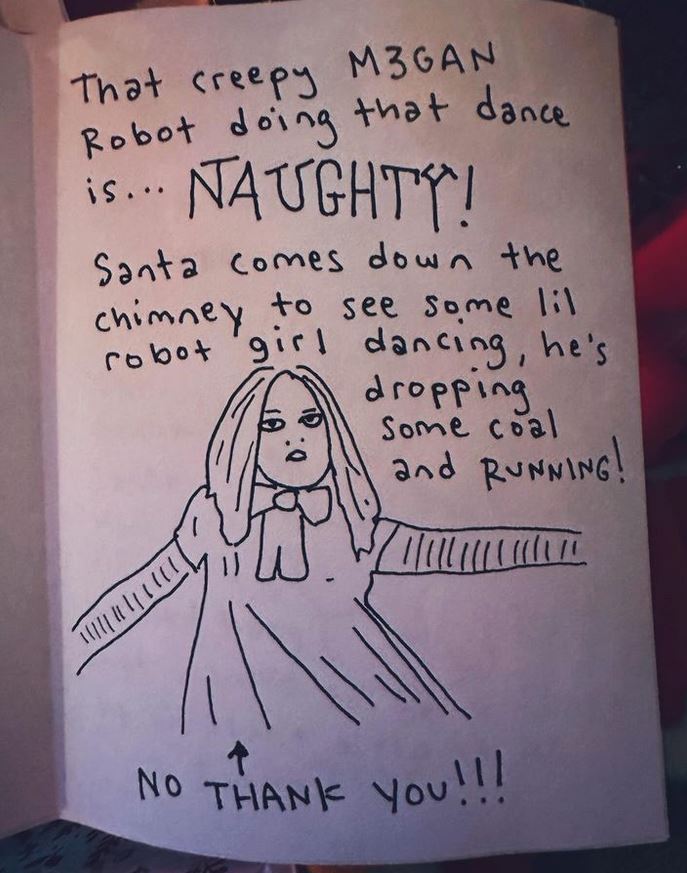 That creepy M3GAN
Robot doing that dance
is... NAUGHTY!
Santa comes down the
chimney to see some lil
robot girl dancing, he's
dropping
some coal
and RUNNING!
NO THANK YOU!!!